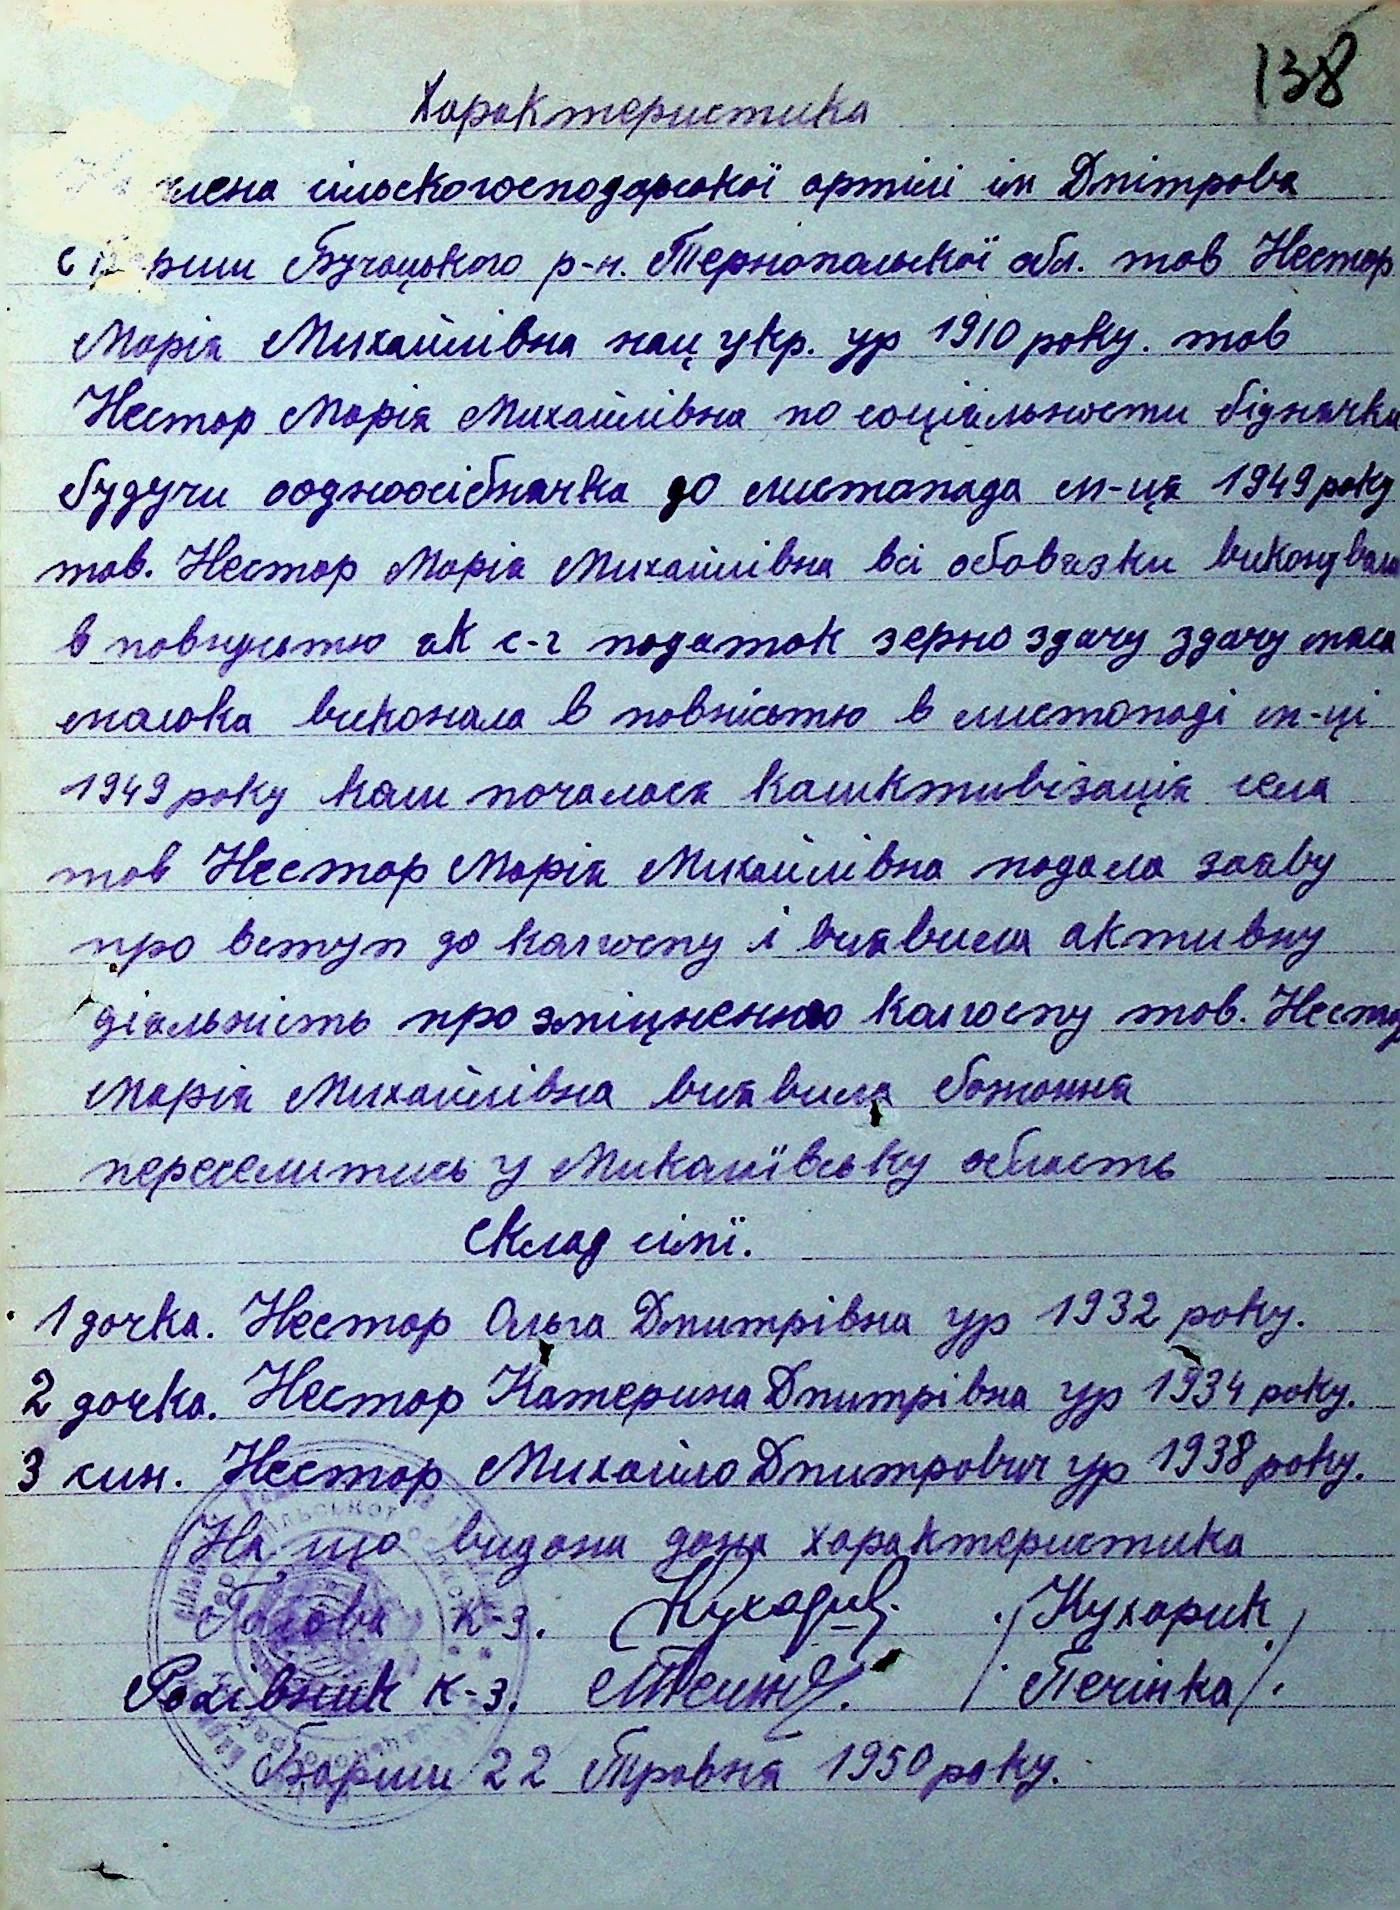 138
Характеристика
члена сільскогосподарської артілі ім Дмітрова
с Бариш Бучацького р-н. Тернопольскої обл. тов Нестор
Марія Михайлівна нац укр. ур 1910 року. тов
Нестор Марія Михайлівна по соціальности біднячка
будучи оодноосібнячка до листопада м-ця 1949 року
тов. Нестор Марія Михайлівна всі обовязки виконувала
в повнустю як с-г податок зерно здачу здачу мяса
молока виконала в повністю в листопаді м-ці
1949 року коли почалася коликтивізація села
тов Нестор Марія Михайлівна подала заяву
про вступ до колгоспу і виявила активну
діяльність про зміцненню колгоспу тов. Нестор
Марія Михайлівна виявила бажання
переселитись у Миколаївську область
Склад сімї.
1 дочка. Нестор Ольга Дмитрівна ур 1932 року.
2 дочка. Нестор Катерина Дмитрівна ур 1934 року.
3 син. Нестор Михайло Дмитрович ур 1938 року.
На що видана дана характеристика
Голова к-з. /Кухарик/
Рахівник к-з. /Печінка/.
Бариш 22 Травня 1950 року.